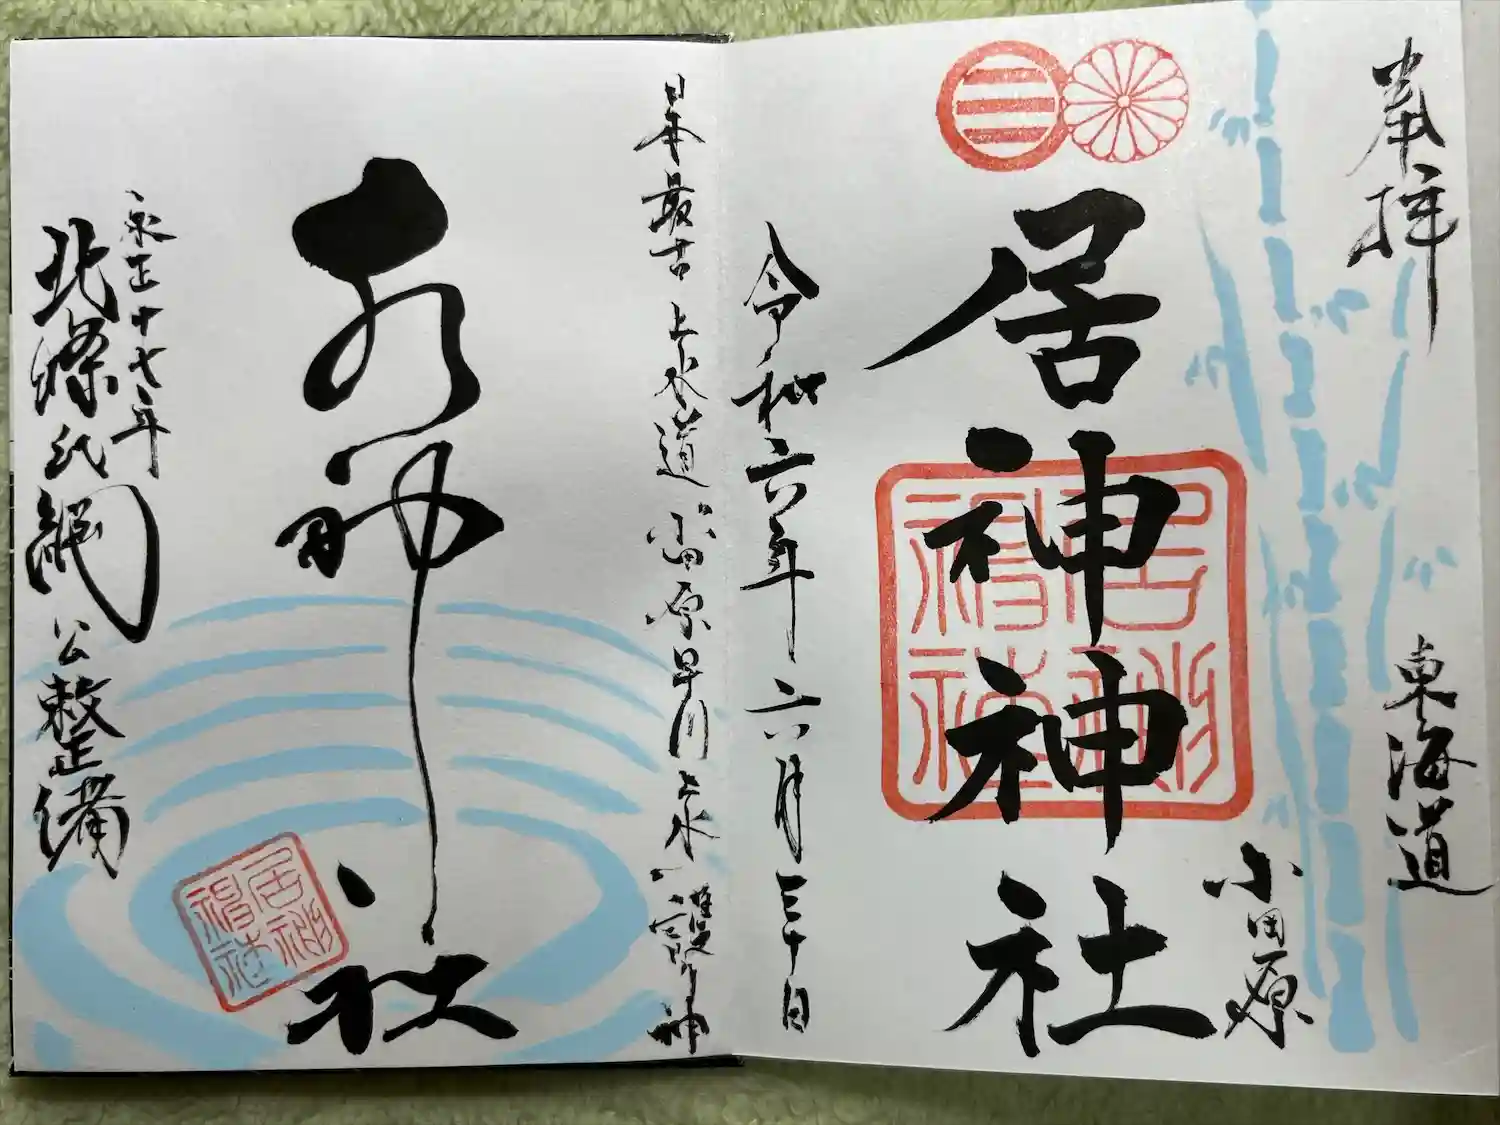 奉拝
東海道
小田原
居神神社
令和六年六月三十日
日本最古上水道小田原早川上水守護神
水神社
永正十七年
北條氏綱公整備
居神神社
居神神社